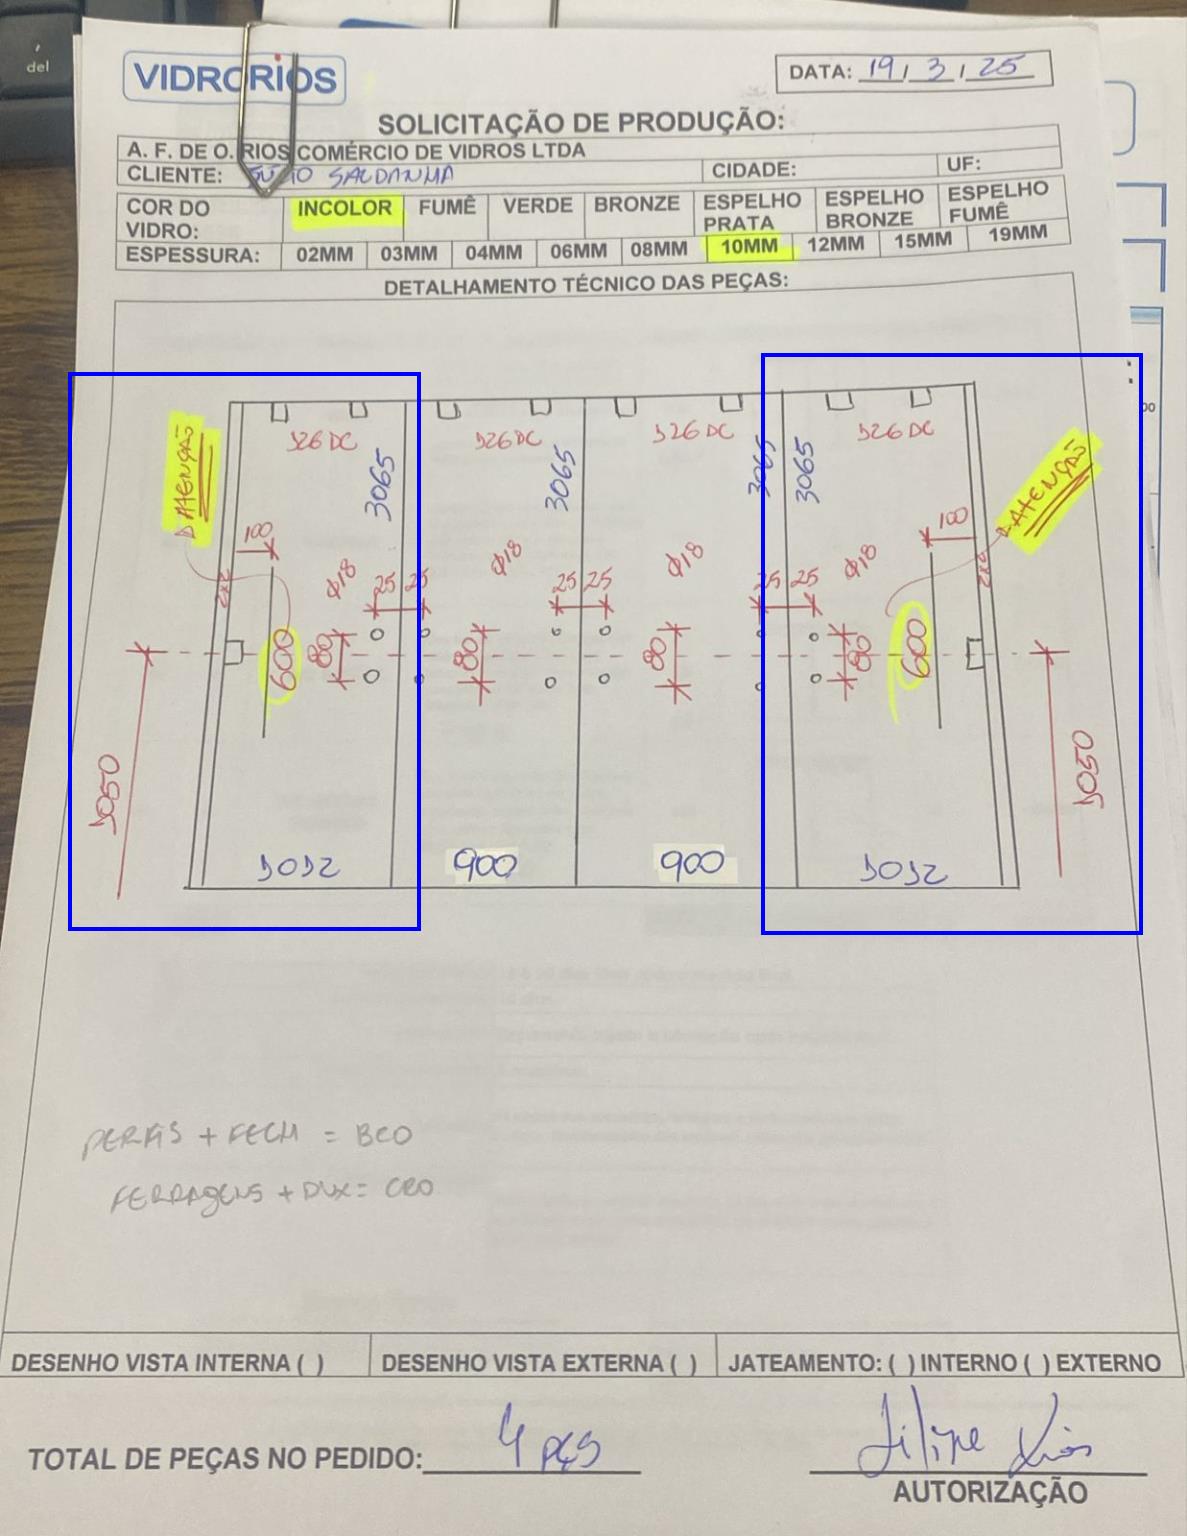 del
VIDRORIOS
DATA: 19/3/25
SOLICITAÇÃO DE PRODUÇÃO:
A. F. DE O. RIOS COMÉRCIO DE VIDROS LTDA
CLIENTE: SALDANHA CIDADE: UF:
COR DO VIDRO: INCOLOR FUMÊ VERDE BRONZE ESPELHO PRATA ESPELHO BRONZE ESPELHO FUMÊ
ESPESSURA: 02MM 03MM 04MM 06MM 08MM 10MM 12MM 15MM 19MM
DETALHAMENTO TÉCNICO DAS PEÇAS:
ATENÇÃO 3065 3065 3065 3065 ATENÇÃO
100 100
Ø18 Ø18 Ø18 Ø18
25 25 25 25 25 25
600 80 80 80 80 600
900 900
PERFIS + FECH = BCO
FERRAGENS + DUX = CRO
DESENHO VISTA INTERNA ( ) DESENHO VISTA EXTERNA ( ) JATEAMENTO: ( ) INTERNO ( ) EXTERNO
TOTAL DE PEÇAS NO PEDIDO: 4 PÇS
Filipe Rios
AUTORIZAÇÃO